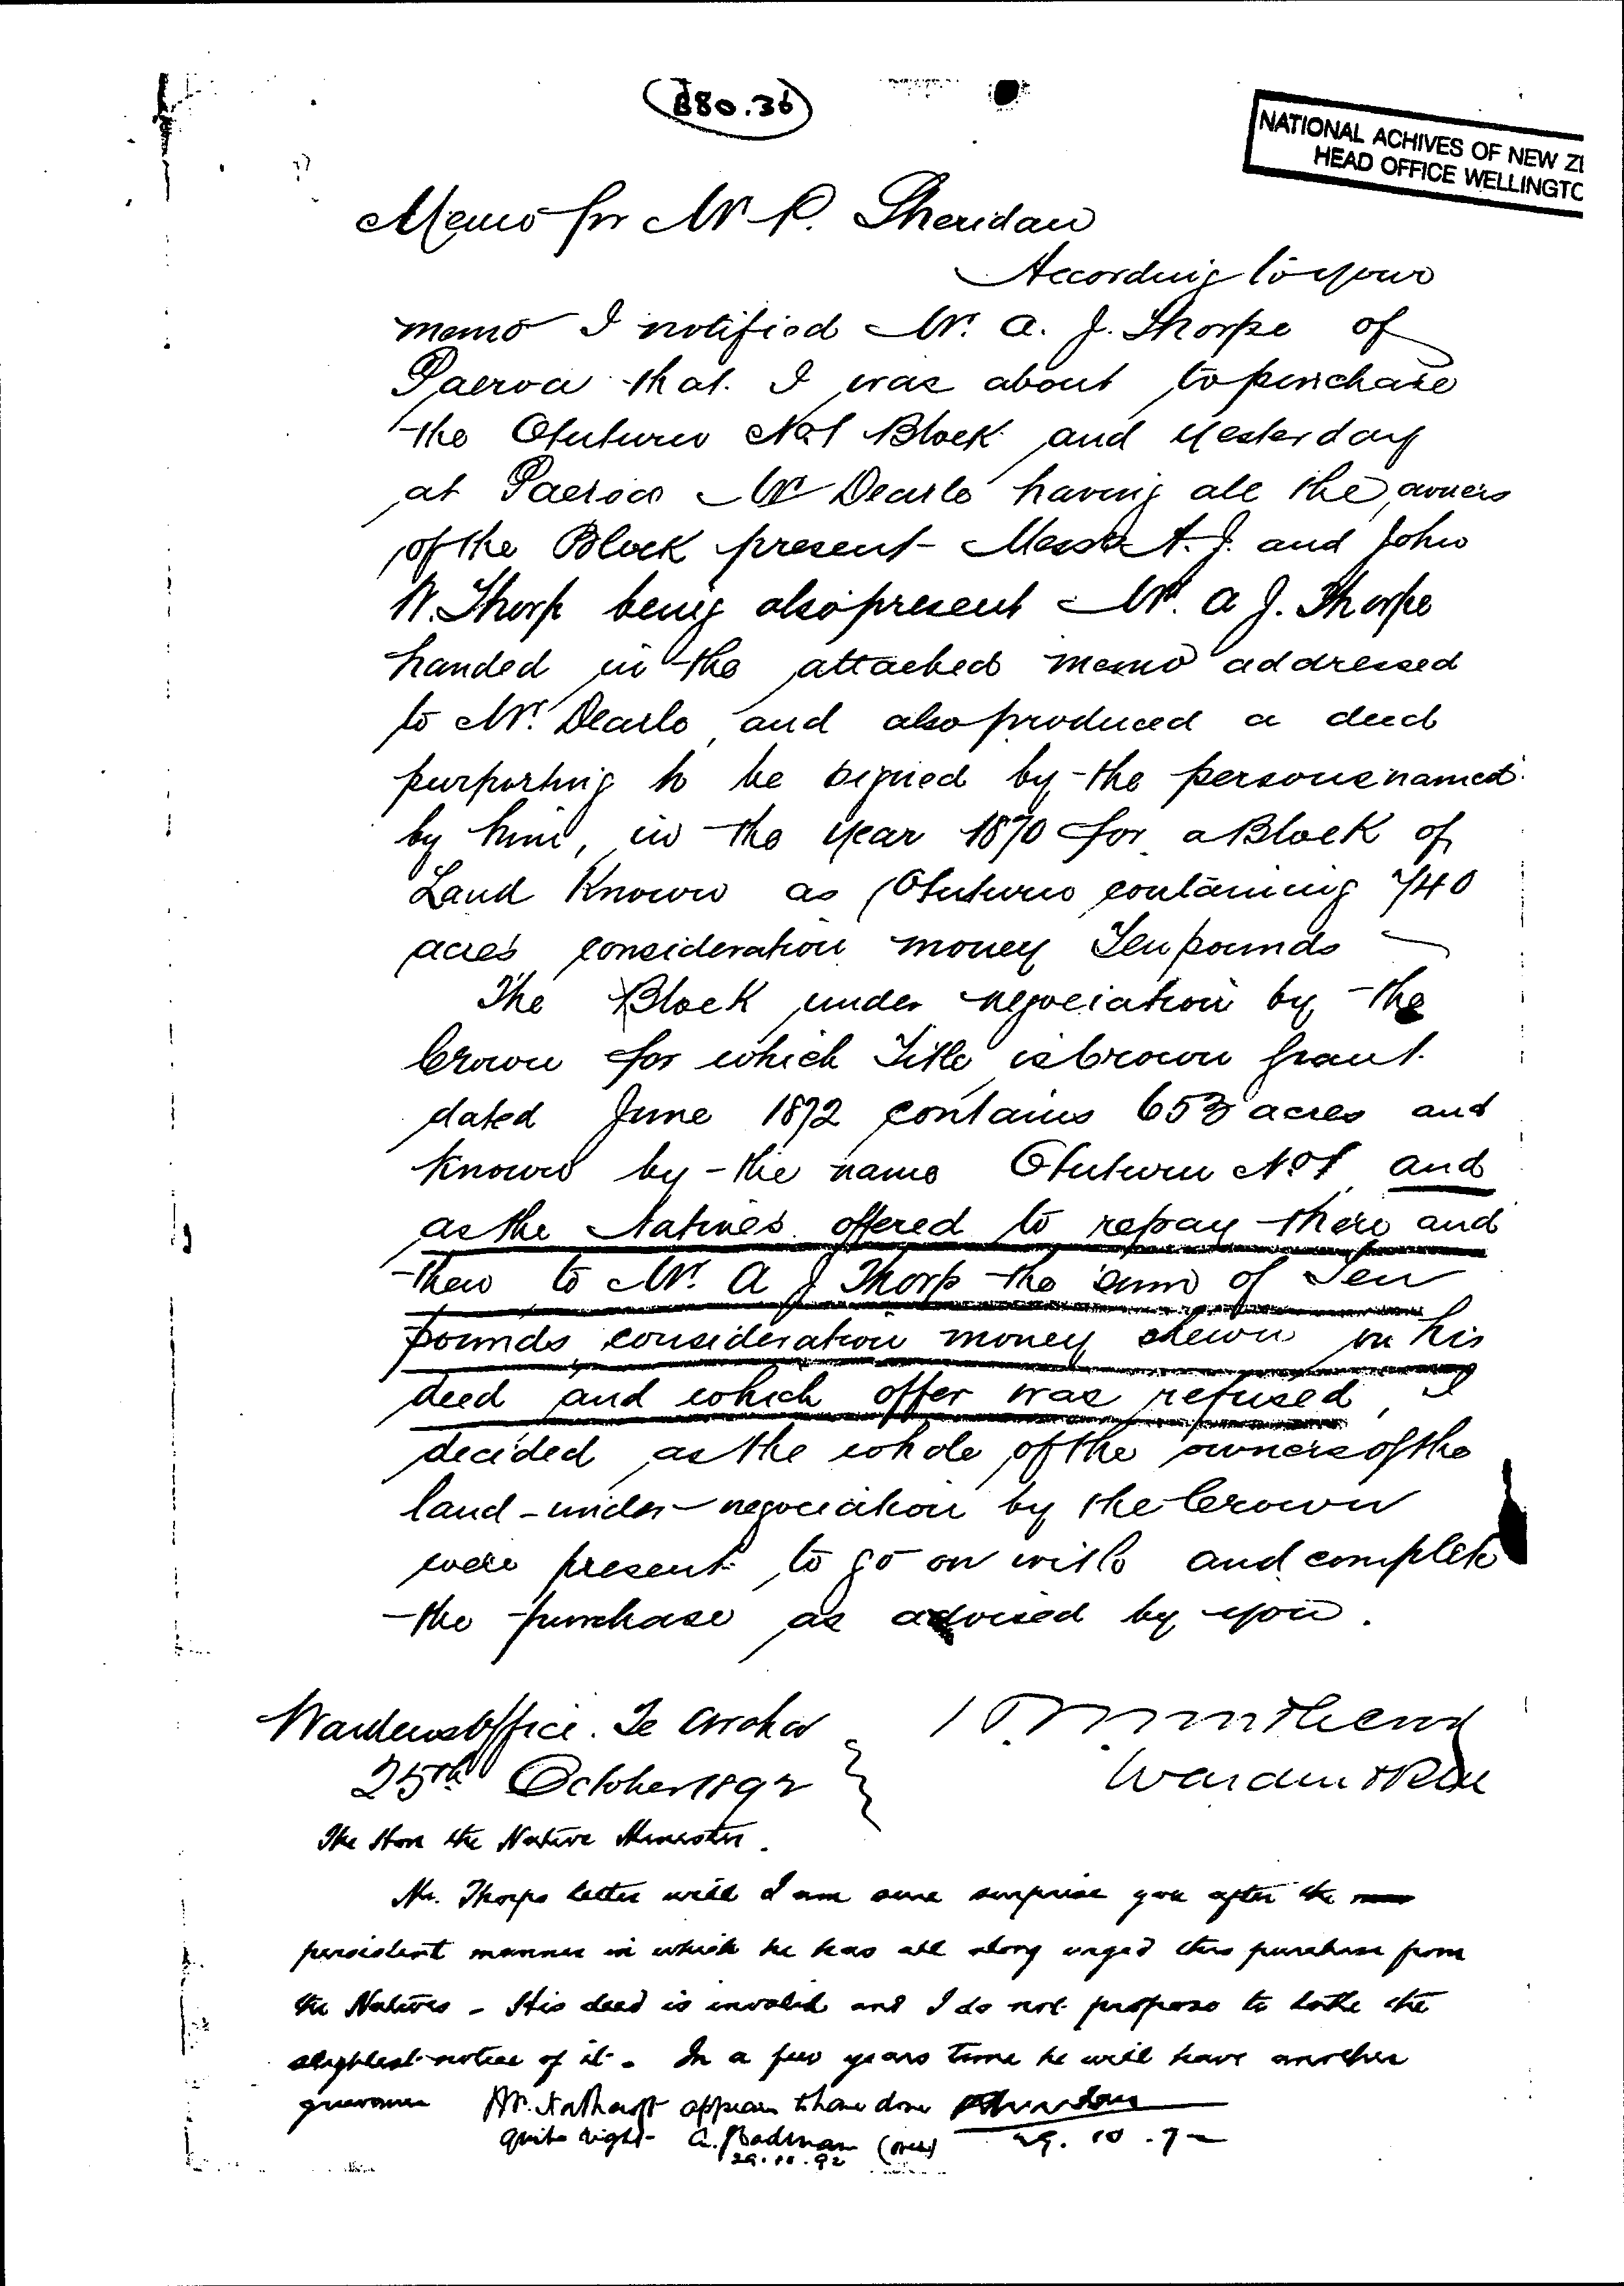 B80.36
NATIONAL ACHIVES OF NEW ZE
HEAD OFFICE WELLINGTO
Memo for Mr P. Sheridan
According to your
memo I notified Mr. A. J. Thorpe of
Paeroa that I was about to purchase
the Otuturu No1 Block and yesterday
at Paeroa Mr Dearle having all the owners
of the Block present Messrs A. J. and John
W. Thorp being also present Mr. A J. Thorpe
handed in the attached memo addressed
to Mr. Dearle, and also produced a deed
purporting to be signed by the persons named
by him, in the year 1870 for a Block of
Land Known as Otuturu containing 740
acres consideration money Ten pounds
The Block under negociation by the
Crown for which Title is Crown Grant
dated June 1872 contains 653 acres and
known by the name Otuturu No1 and
as the Natives offered to repay there and
then to Mr. A J Thorp the sum of Ten
pounds consideration money shewn in his
deed and which offer was refused, I
decided as the whole of the owners of the
land under negociation by the Crown
were present to go on with and complete
the purchase as advised by you.
Wardens Office. Te Aroha
25th October 1892
Warden & RM
The Hon the Native Minister.
Mr. Thorps letter will I am sure surprise you after the
persistent manner in which he has all along urged this purchase from
the Natives - His deed is invalid and I do not propose to take the
slightest notice of it. In a few years time he will have another
grievance
Mr. Northcroft appears to have done
quite right - A. J. Cadman
29.10.92
29.10.92